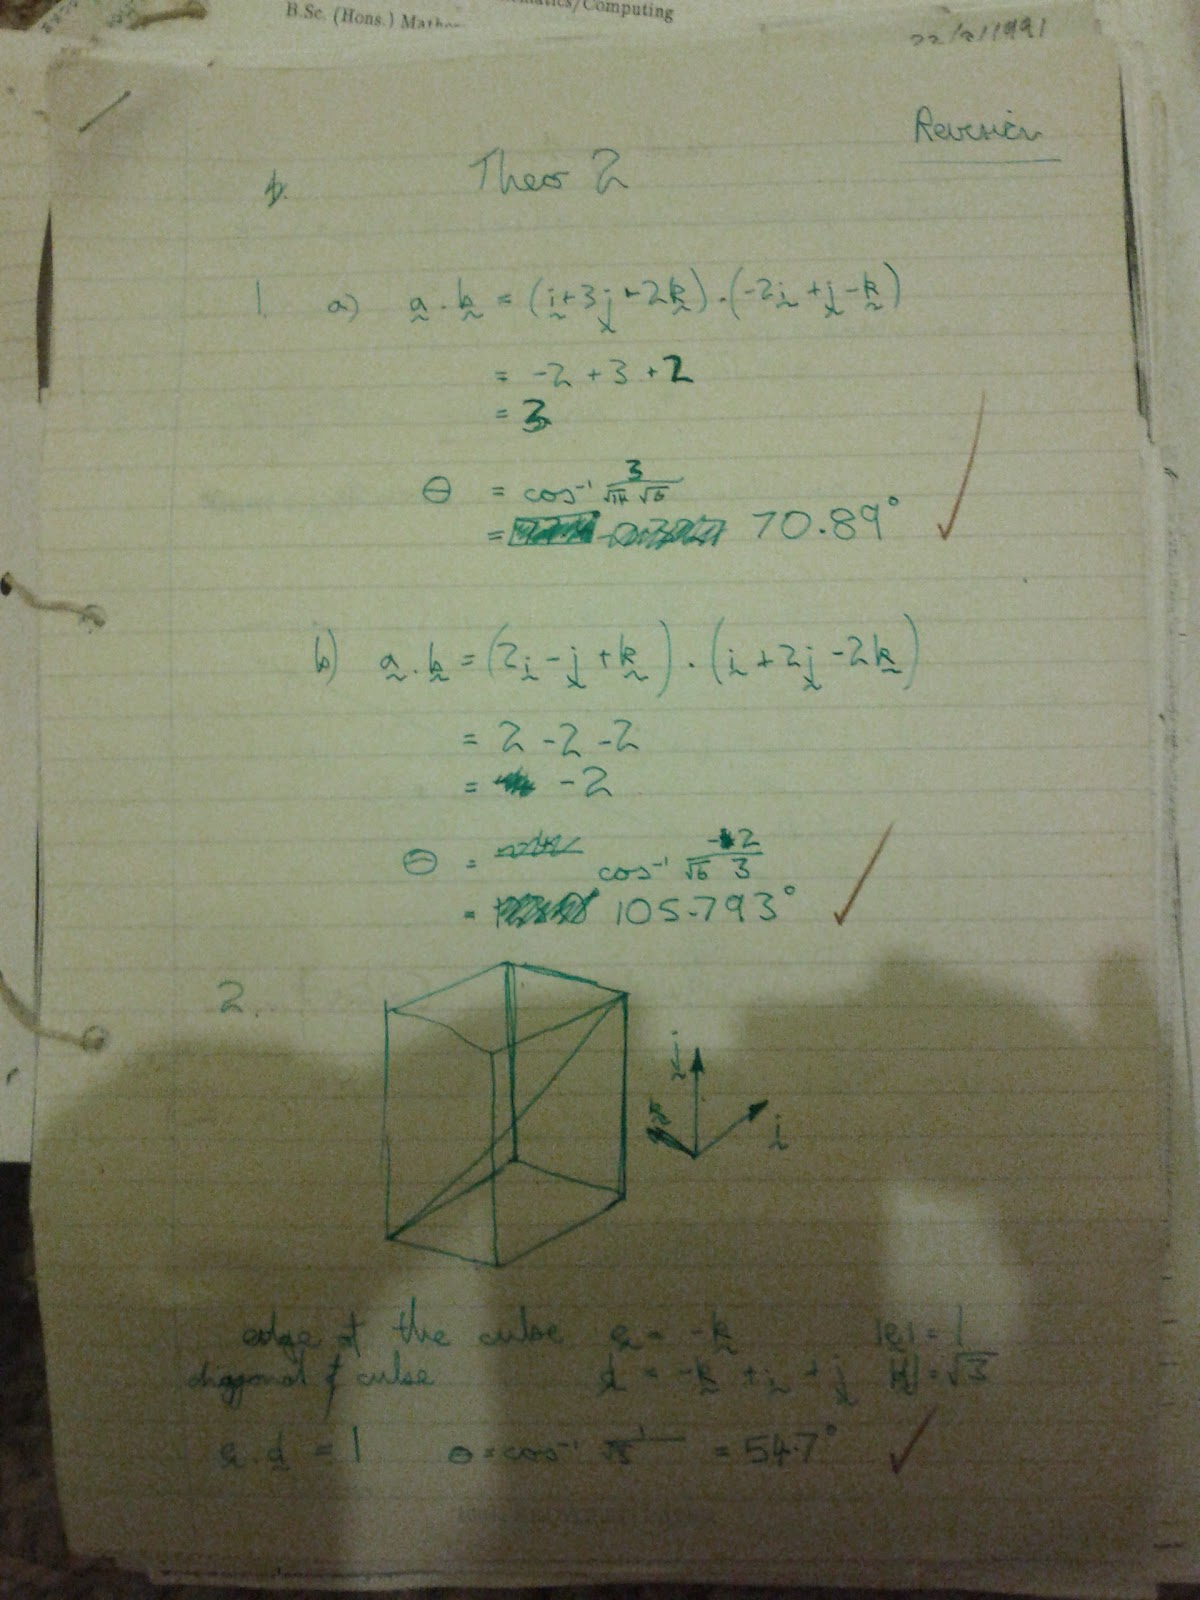 B.Sc. (Hons.) Mathe
matics/Computing
22/2/1991
Revision
Theo 2
1. a) a . b = (i + 3j + 2k) . (-2i + j - k)
= -2 + 3 + 2
= 3
θ = cos⁻¹ 3/(√14 √6)
= 70.89°
b) a . b = (2i - j + k) . (i + 2j - 2k)
= 2 - 2 - 2
= -2
θ = cos⁻¹ -2/(√6 3)
= 105.793°
2.
j
i
edge of the cube e = -k |e| = 1
diagonal of cube d = -k + i + j |d| = √3
e . d = 1 θ = cos⁻¹ 1/√3 = 54.7°